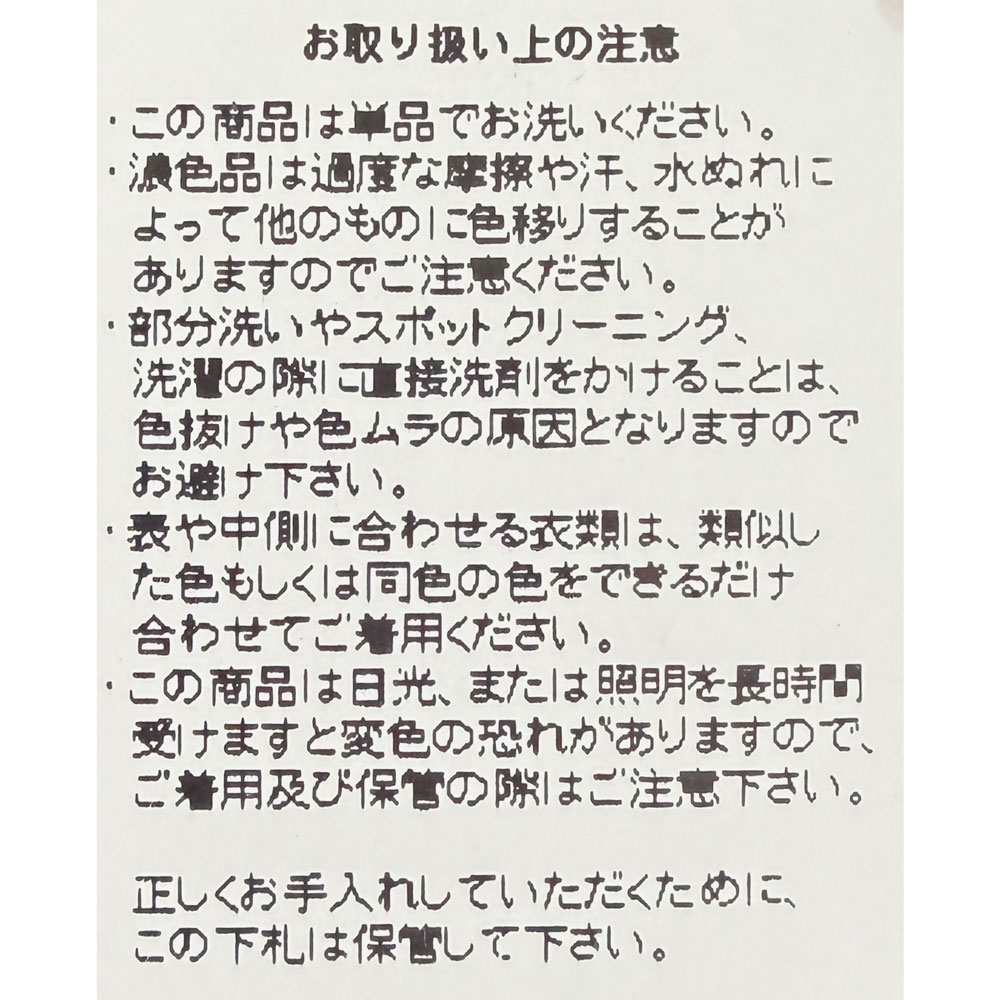 お取り扱い上の注意
・この商品は単品でお洗いください。
・濃色品は過度な摩擦や汗、水ぬれに
よって他のものに色移りすることが
ありますのでご注意ください。
・部分洗いやスポットクリーニング、
洗濯の際に直接洗剤をかけることは、
色抜けや色ムラの原因となりますので
お避け下さい。
・表や中側に合わせる衣類は、類似し
た色もしくは同色の色をできるだけ
合わせてご着用ください。
・この商品は日光、または照明を長時間
受けますと変色の恐れがありますので、
ご着用及び保管の際はご注意下さい。
正しくお手入れしていただくために、
この下札は保管して下さい。